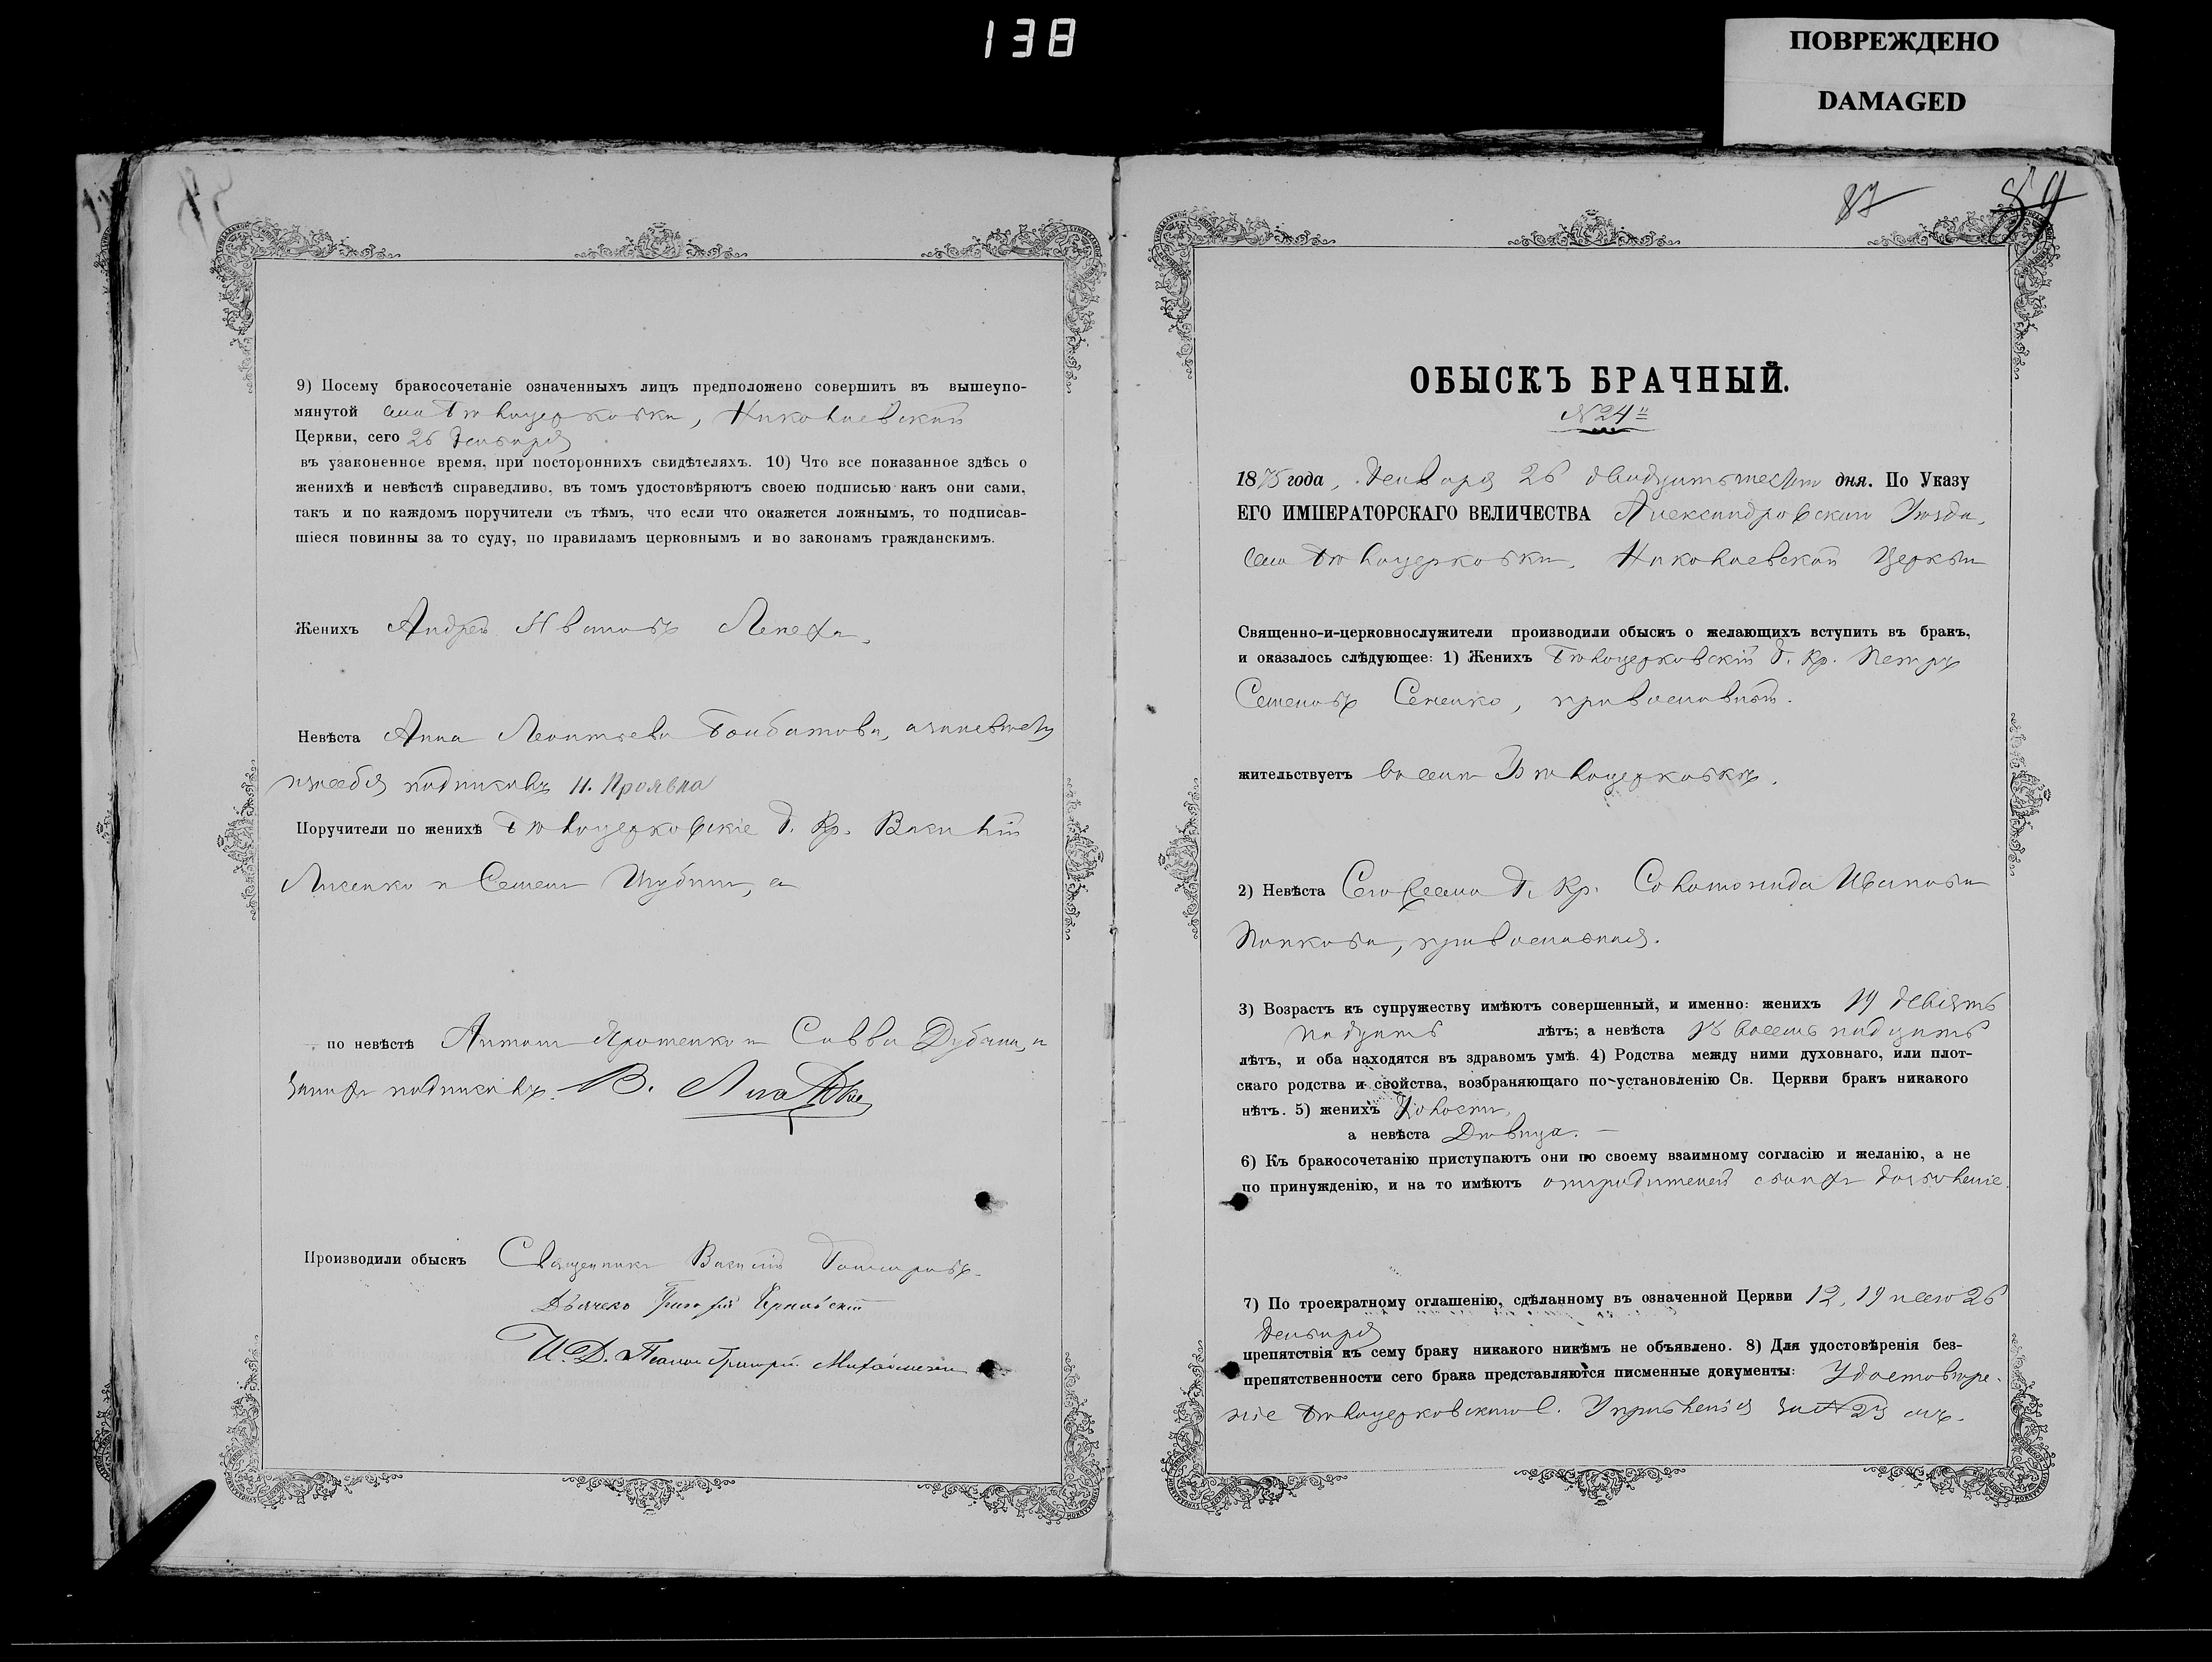 138
ПОВРЕЖДЕНО
DAMAGED
9) Посему бракосочетаніе означенныхъ лицъ предположено совершить въ вышеупо-
мянутой села Бѣлоцерковки, Николаевской
Церкви, сего 26 Января
въ узаконенное время, при постороннихъ свидѣтеляхъ. 10) Что все показанное здѣсь о
женихѣ и невѣстѣ справедливо, въ томъ удостовѣряютъ своею подписью какъ они сами,
такъ и по каждомъ поручители съ тѣмъ, что если что окажется ложнымъ, то подписав-
шіеся повинны за то суду, по правиламъ церковнымъ и по законамъ гражданскимъ.
Женихъ Андрей Ивановъ Лепеха,
Невѣста Анна Леонтьева
подписалъ
Поручители по женихѣ Бѣлоцерковскіе Г. Кр. Василій
Лисенко и Семенъ
по невѣстѣ Антонъ Савва
подписалъ В.
Производили обыскъ Священникъ Василій
Дьячекъ Григорій
И. Д. Григорій
87
ОБЫСКЪ БРАЧНЫЙ.
№ 24й
1875 года, Января 26 двадцать шестого дня. По Указу
ЕГО ИМПЕРАТОРСКАГО ВЕЛИЧЕСТВА Александровскаго Уѣзда,
села Бѣлоцерковки, Николаевской Церкви
Священно-и-церковнослужители производили обыскъ о желающихъ вступить въ бракъ,
и оказалось слѣдующее: 1) Женихъ Бѣлоцерковскій Г. Кр. Петръ
Семеновъ Сененко, православный.
жительствуетъ въ селѣ Бѣлоцерковкѣ.
2) Невѣста Сего села Г. Кр. Соломонида Иванова
Попкова, православная.
3) Возрастъ къ супружеству имѣютъ совершенный, и именно: женихъ 19 девять
надцать лѣтъ; а невѣста 18 восемь надцать
лѣтъ, и оба находятся въ здравомъ умѣ. 4) Родства между ними духовнаго, или плот-
скаго родства и свойства, возбраняющаго по установленію Св. Церкви бракъ никакого
нѣтъ. 5) женихъ Холостъ,
а невѣста Дѣвица.
6) Къ бракосочетанію приступаютъ они по своему взаимному согласію и желанію, а не
по принужденію, и на то имѣютъ отъ родителей своихъ дозволеніе.
7) По троекратному оглашенію, сдѣланному въ означенной Церкви 12, 19 и сего 26
Января
препятствія къ сему браку никакого никѣмъ не объявлено. 8) Для удостовѣренія без-
препятственности сего брака представляются писменные документы: Удостовѣре-
ніе Бѣлоцерковскаго В. Управленія за №